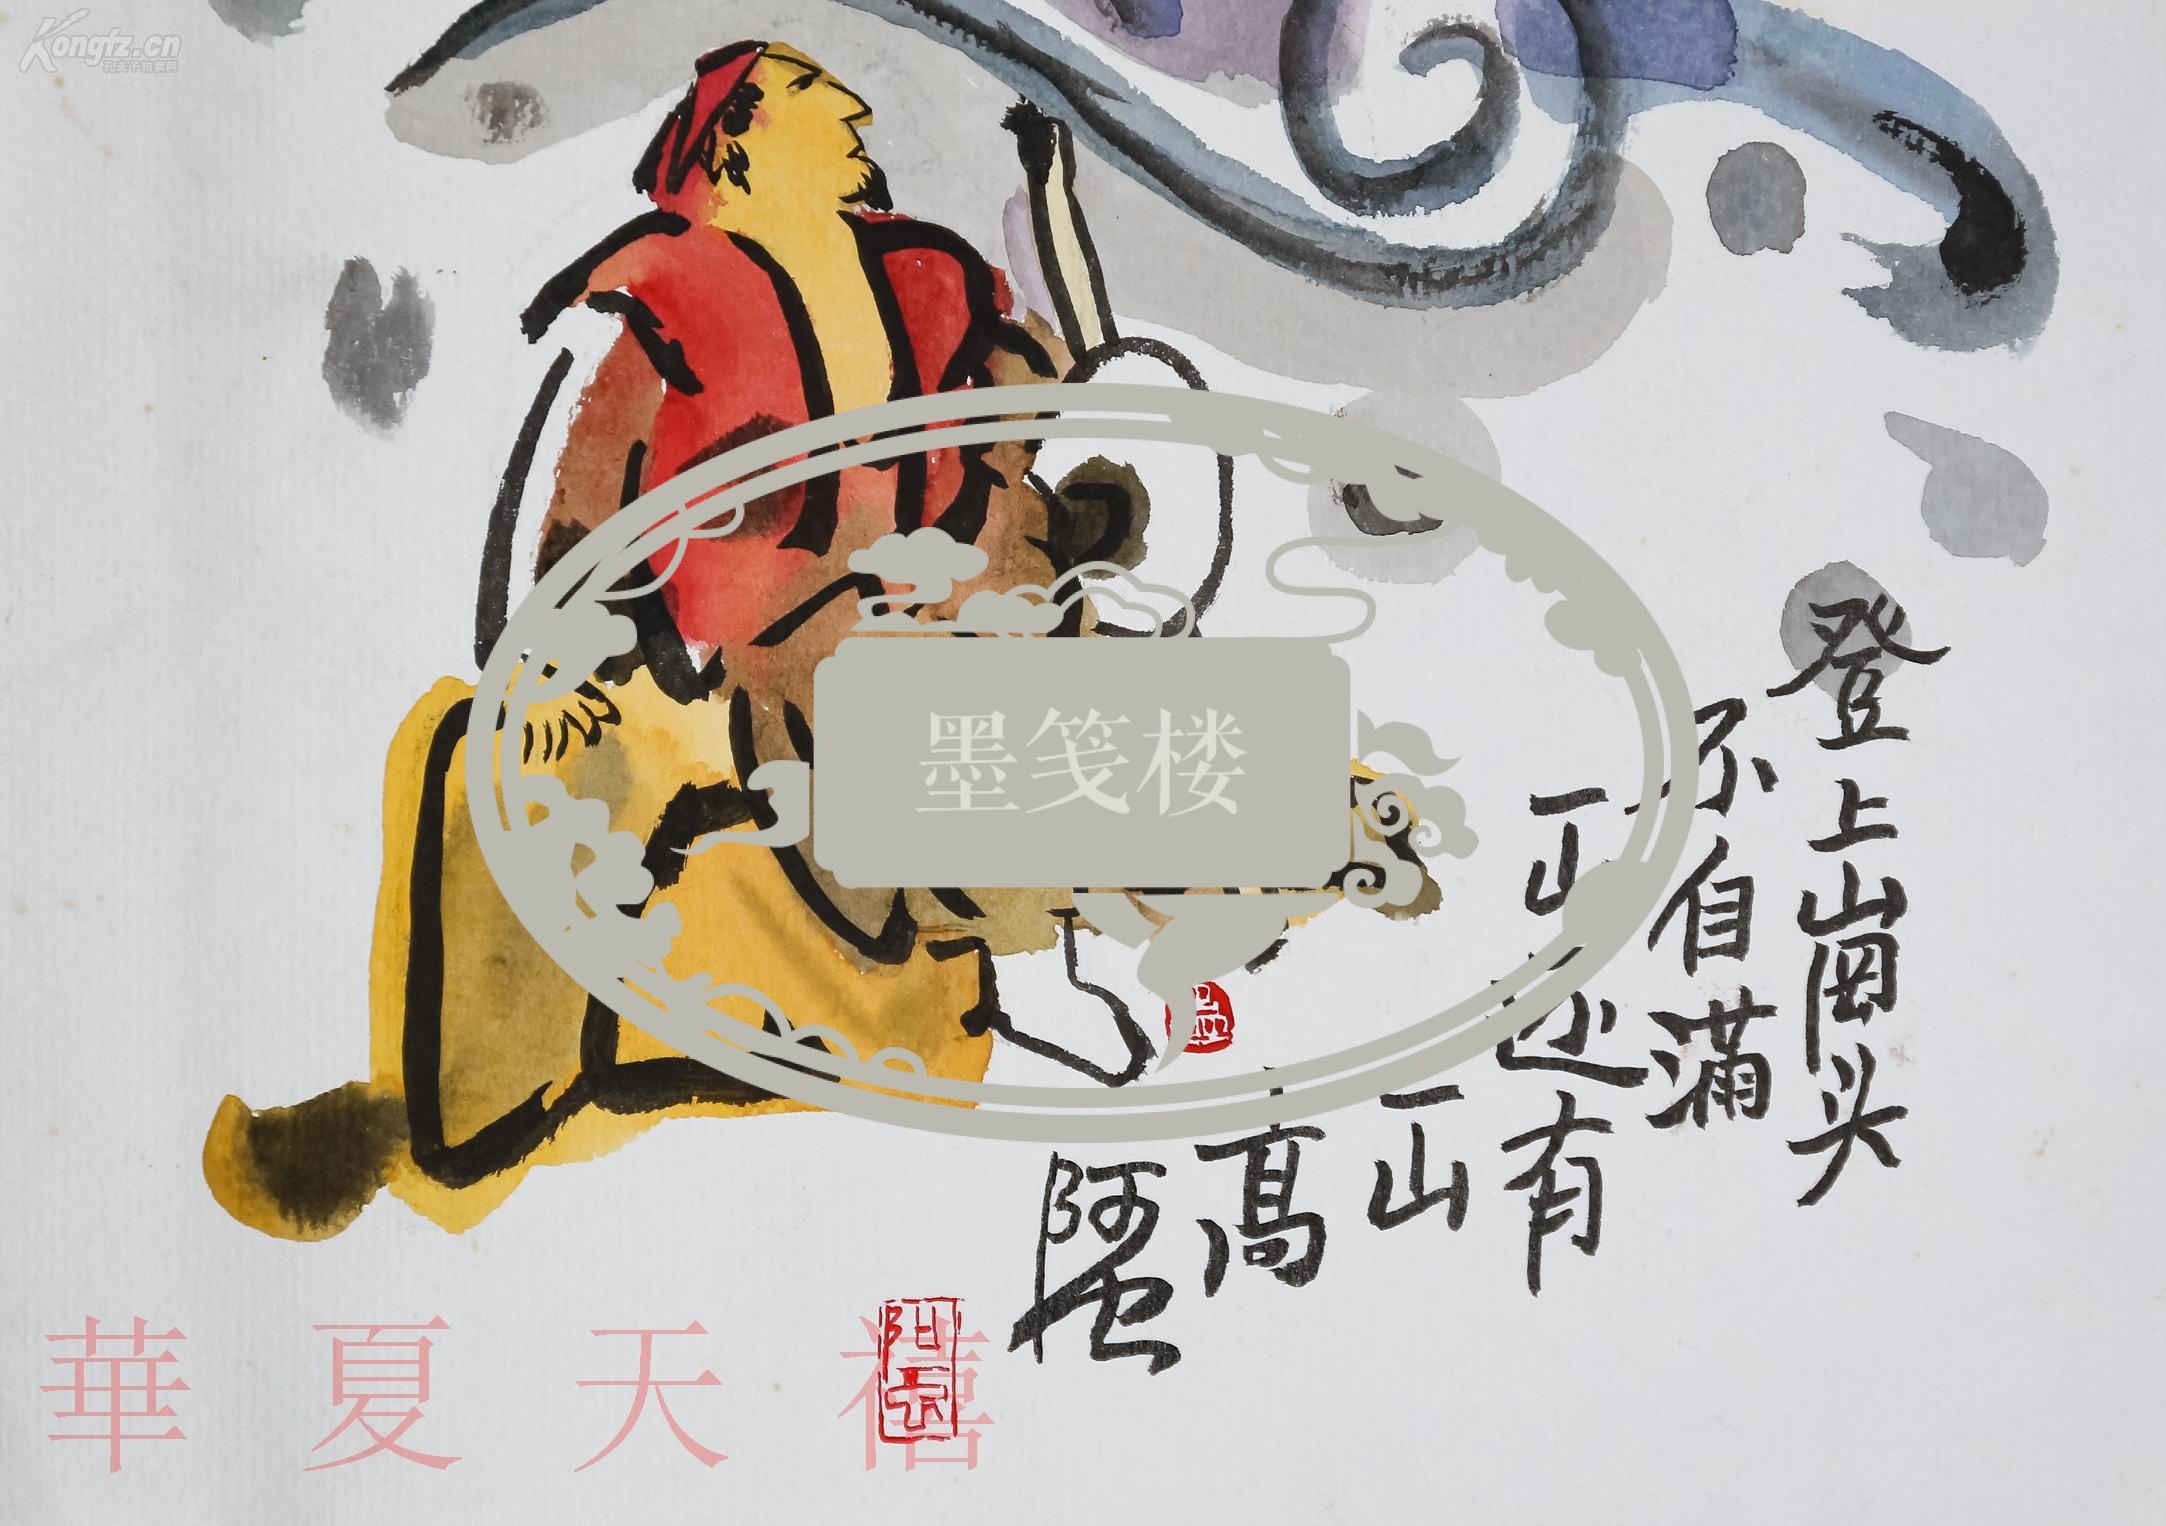 Kongfz.cn
孔夫子拍卖网
登上崗头
不自滿
一山还有
一山
高
墨笺楼
華夏天禧